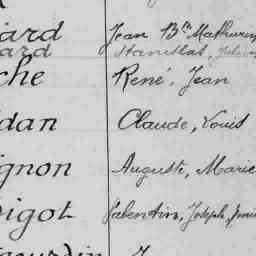 ard Jean Bth Mathurin
ard Stanislas, Julien
che René, Jean
dan Claude, Louis
gnon Auguste, Marie
igot Valentin, Joseph,